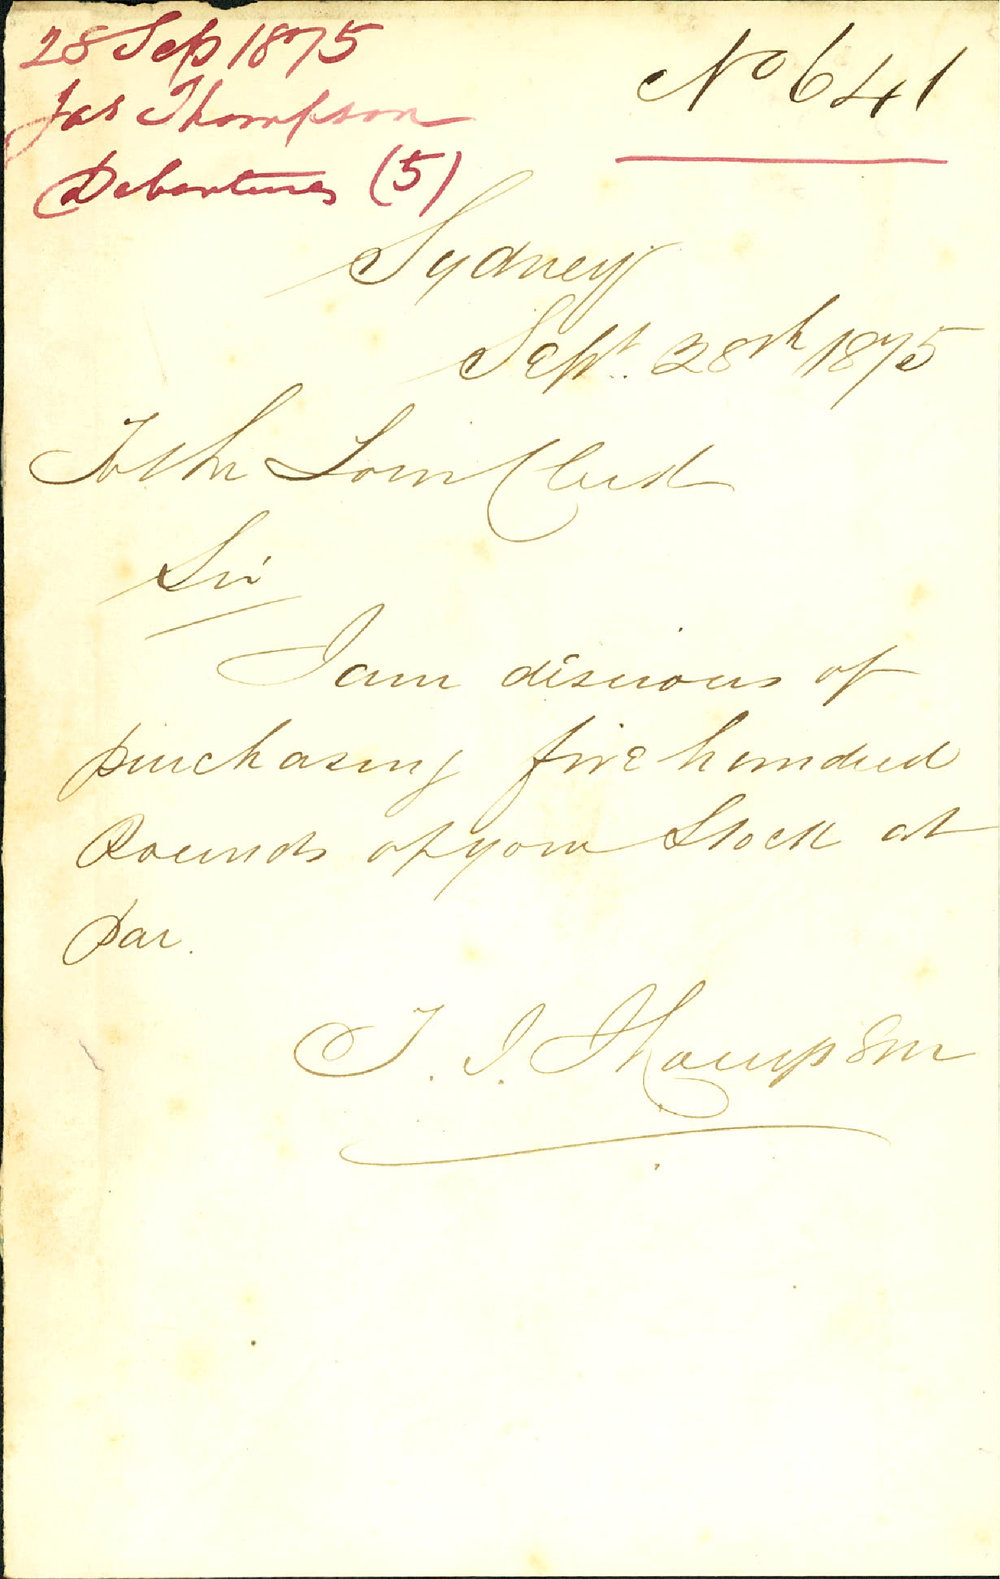 28 Sep 1875
Jas Thompson
Debentures (5)
No 641
Sydney
Sept. 28th 1875
To the Town Clerk
Sir
I am desirous of
purchasing five hundred
Pounds of your Stock at
par.
J. J. Thompson